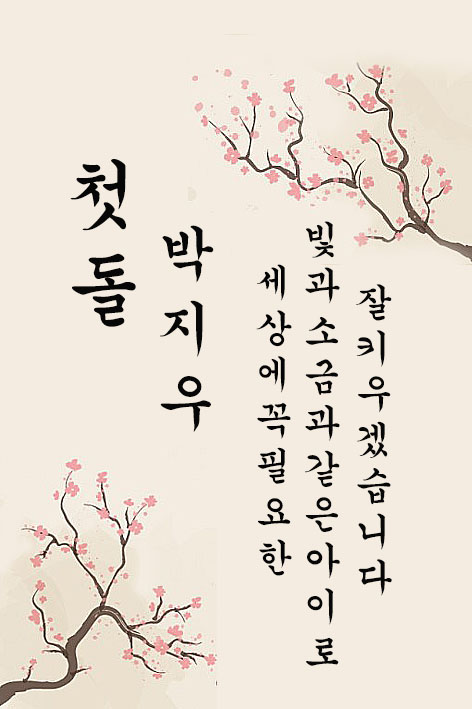 첫돌
박지우
세상에꼭필요한
빛과소금과같은아이로
잘키우겠습니다